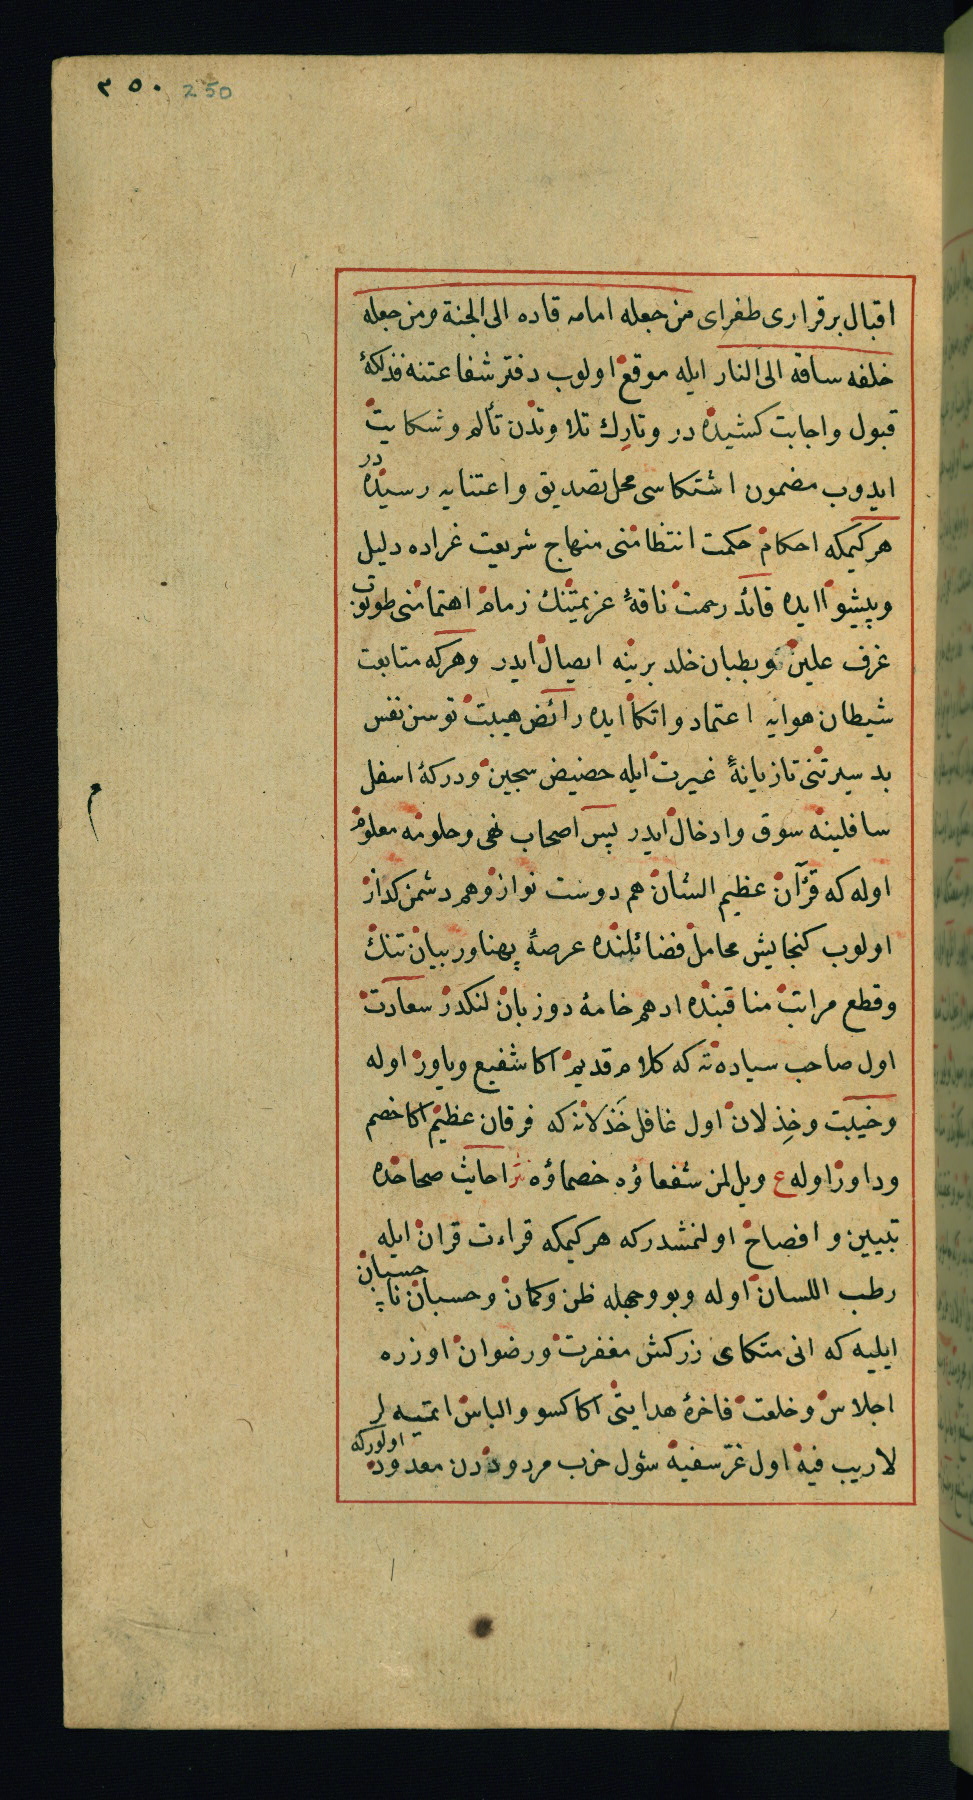 ٢٥٠ 250
اقبال برقراری طغرای من جعله امامه قاده الى الجنة ومن جعله
خلفه ساقه الى النار ایله موقع اولوب دفتر شفاعتنه فذلکهٔ
قبول واجابت کشیده در وتارك تلاوتدن تألم وشکایت
ایدوب مضمون اشتکاسی محل تصدیق واعتنایه رسیده در
هرکیمکه احکام حکمت انتظامنی منهاج شریعت غراده دلیل
وپیشوا ایده قائد رحمت ناقهٔ عزیمتینك زمام اهتمامنی طوتوب
غرف علیین وبطبان خلد برینه ایصال ایدر وهرکه متابعت
شیطان هوایه اعتماد واتکا ایده رائض هیبت توسن نفس
بد سیرتنی تازیانهٔ غیرت ایله حضیض سجین ودرکهٔ اسفل
سافلینه سوق وادخال ایدر پس اصحاب نهی وحلومه معلوم
م
اوله که قرآن عظیم الشان هم دوست نواز وهم دشمن کداز
اولوب کنجایش محامل فضائلنده عرصهٔ پهناور بیان تنك
وقطع مراتب مناقبنده ادهم خامهٔ دوزبان لنکدر سعادت
اول صاحب سیادته که کلام قدیم اکا شفیع ویاور اوله
وخیبت وخذلان اول غافل خذلانه که فرقان عظیم اکا خصم
وداور اوله ع ویل لمن شفعاؤه خصماؤه نثر احادیث صحاحده
تبیین وافصاح اولنمشدرکه هرکیمکه قراءت قران ایله
رطب اللسان اوله وبو وجهله ظن وکمان وحسبان ناچسبان
ایلیه که انی متکای زرکش مغفرت ورضوان اوزره
اجلاس وخلعت فاخرهٔ هدایتی اکا کسو والباس ایتمیه لر
لاریب فیه اول غرّ سفیه سئول حزب مردوددن معدود اولورکه